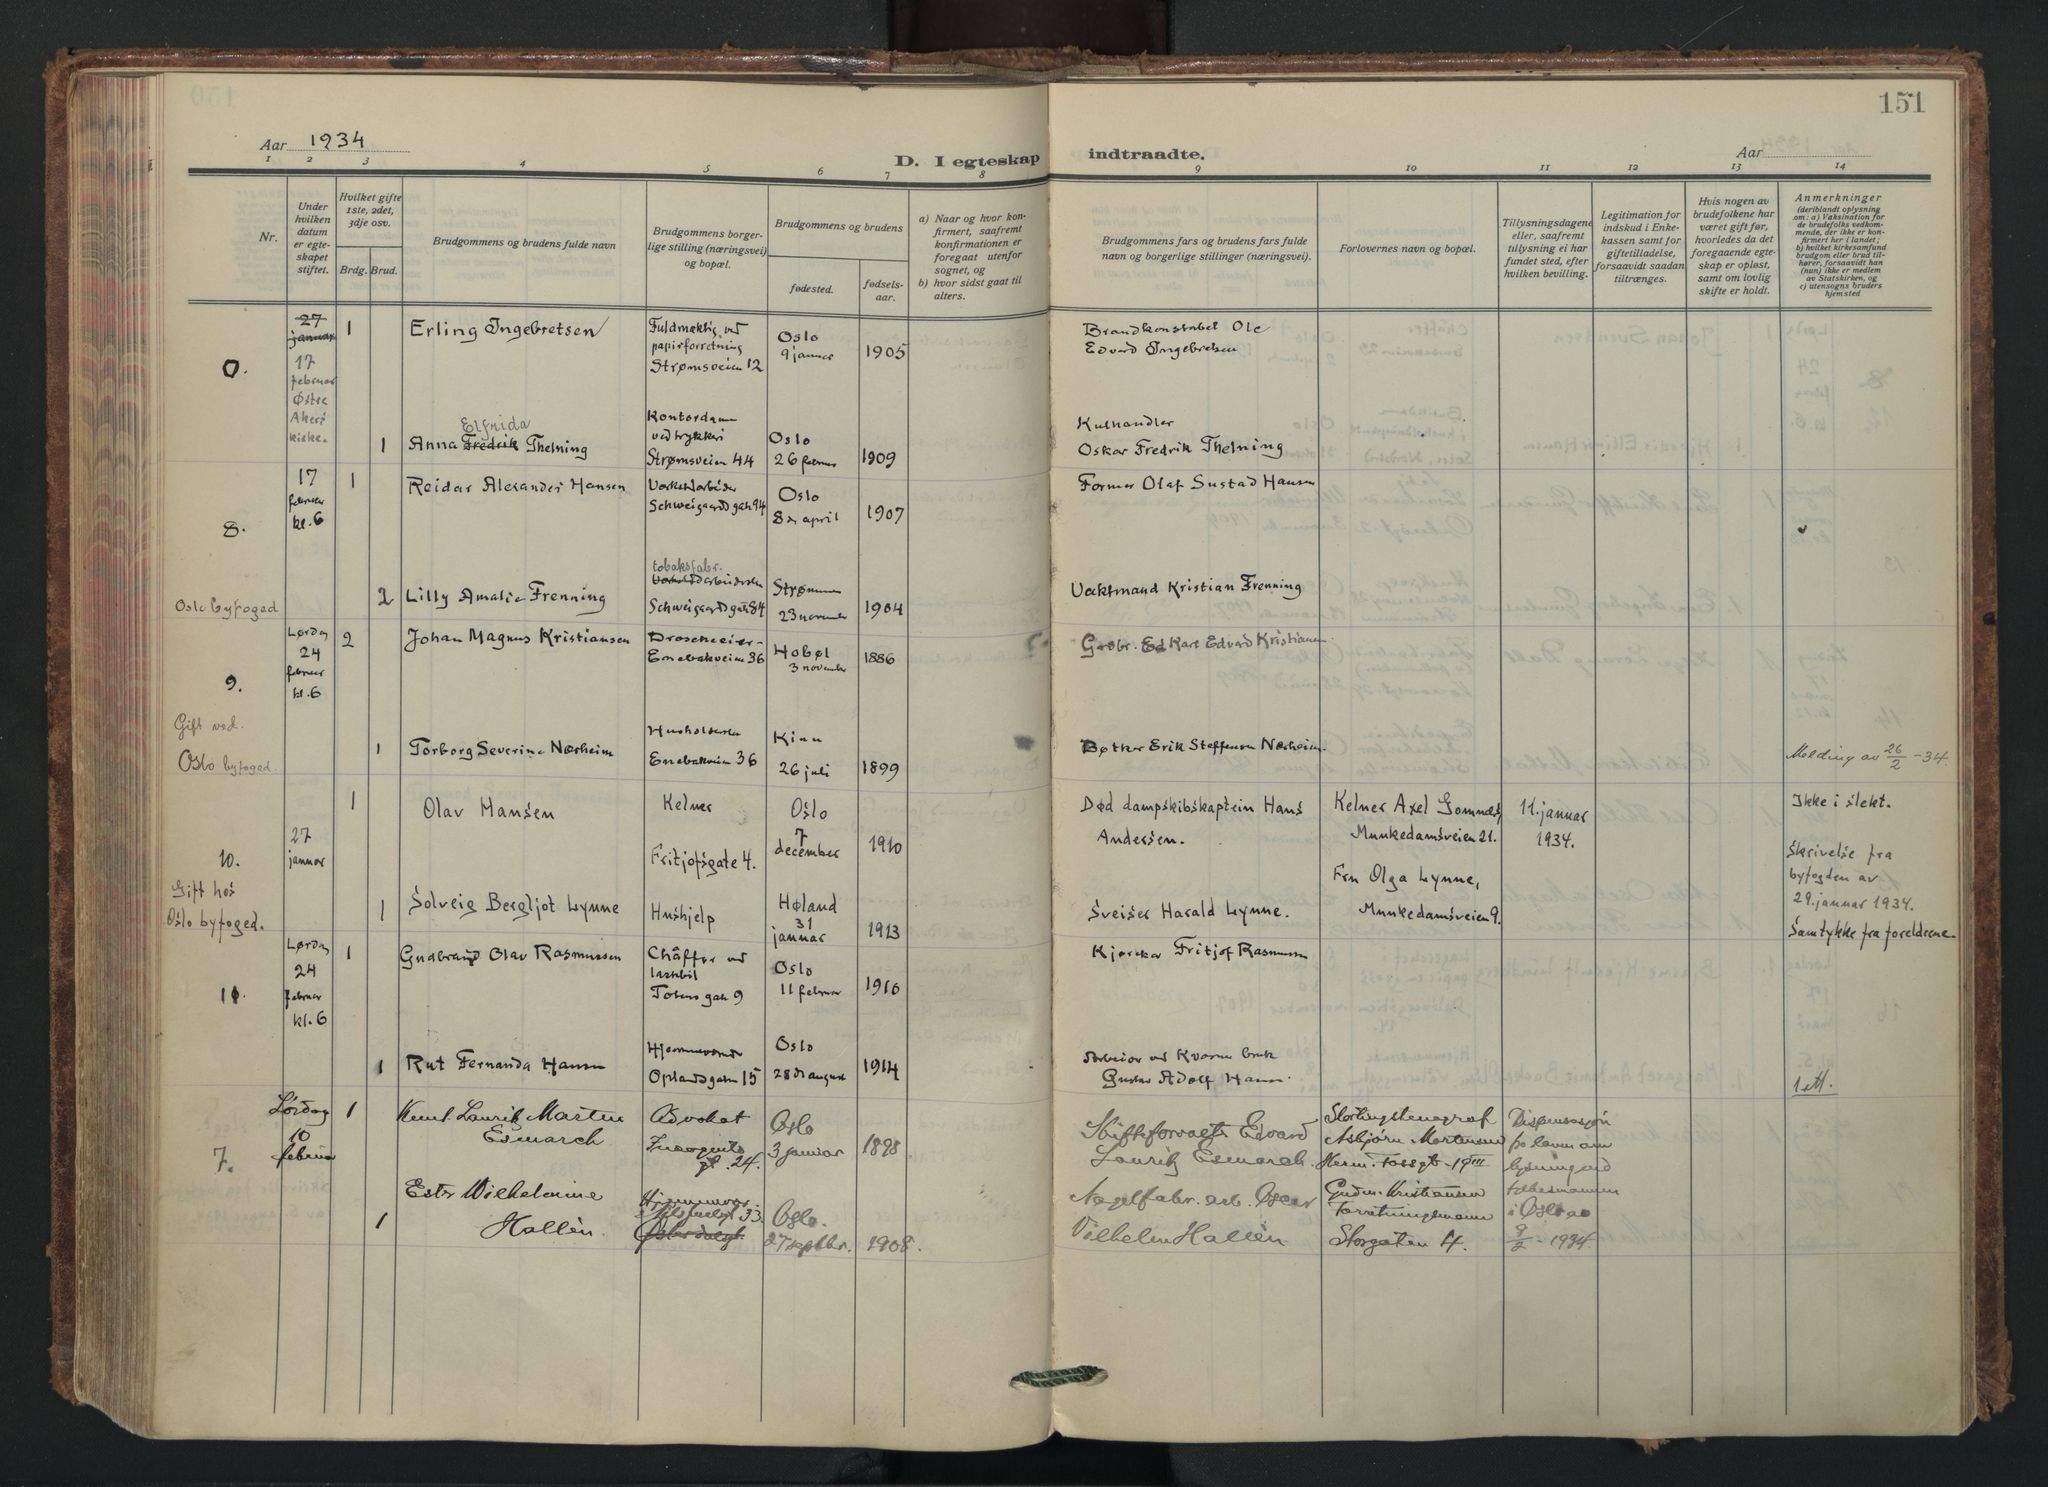 151
Aar 1934
D. I egteskap indtraadte.
Aar
1 2 3 4 5 6 7 8 9 10 11 12 13 14
Nr.
Under hvilken datum er egteskapet stiftet.
Hvilket gifte 1ste, 2det, 3dje osv.
Brdg. Brud.
Brudgommens og brudens fulde navn
Brudgommens borgerlige stilling (næringsvei) og bopæl.
Brudgommens og brudens
fødested.
fødselsaar.
a) Naar og hvor konfirmert, saafremt konfirmationen er foregaat utenfor sognet, og
b) hvor sidst gaat til alters.
Brudgommens fars og brudens fars fulde navn og borgerlige stillinger (næringsvei).
Forlovernes navn og bopæl.
Tillysningsdagene eller, saafremt tillysning ei har fundet sted, efter hvilken bevilling.
Legitimation for indskud i Enkekassen samt for giftetilladelse, forsaavidt saadan tiltrænges.
Hvis nogen av brudefolkene har været gift før, hvorledes da det foregaaende egteskap er opløst, samt om lovlig skifte er holdt.
Anmerkninger
(deriblandt oplysning om: a) Vaksination for de brudefolks vedkommende, der ikke er konfirmert her i landet; b) hvilket kirkesamfund brudgom eller brud tilhører, forsaavidt han (hun) ikke er medlem av Statskirken, og c) utensogns bruders hjemsted
0.
27 januar
17 februar Østre Akers kirke.
1 Erling Ingebretsen
Fuldmæktig ved papirforretning
Strømsveien 12
Oslo
9 januar 1905
Brandkonstabel Ole
Edvard Ingebretsen
Elfrida
1 Anna Fredrik Thelning
Kontordame ved trykkeri
Strømsveien 44
Oslo
26 februar 1909
Kulhandler
Oskar Fredrik Thelning
8.
17 februar kl. 6
1 Reidar Alexander Hansen
Schweigaardsgate 94
Oslo
8de april 1907
Former Olaf Sustad Hansen
Oslo byfoged
2 Lilly Amalie Frenning
tobaksfabr.
Schweigaardsgate 84
Strømmen
23 november 1904
Vaktmand Kristian Frenning
9.
Lørdag 24 februar kl. 6
2 Johan Magnus Kristiansen
Droscheeier
Enebakveien 36
Hobøl
3 november 1886
Karl Edvard Kristiansen
Gift ved.
Oslo byfoged.
1 Torborg Severine Nærheim
Enebakveien 36
Kinn
26 juli 1899
Bøtker Erik Steffensen Nærheim.
Melding av 26/2 - 34.
10.
27 januar
1 Olav Hansen
Kelner
Fritjofsgate 4.
Oslo
7 december 1910
Død dampskibskaptein Hans
Andersen.
Kelner Axel Gomnæs,
Munkedamsveien 21.
11. januar
1934.
Ikke i slekt.
Gift hos
Oslo byfoged.
1 Solveig Bergljot Lynne
Hushjelp
Høland
31 januar 1913
Sveiser Harald Lynne.
Fru Olga Lynne,
Munkedamsveien 9.
Skrivelse fra
byfogden av
29. januar 1934.
Samtykke fra foreldrene.
11.
Lørdag 24 februar kl. 6
1 Gudbrand Olav Rasmussen
Chåffør ved lastebil
Totens gate 9
Oslo
11 februar 1910
Fritjof Rasmussen
1 Rut Fernanda Hansen
Hjemmeværende
Oplandsgaten 15
Oslo
28de august 1914
Arbeider ved Kværner bruk
Gustav Adolf Hansen.
1 att.
7.
Lørdag 10 februar
1 Knut Lauritz Martin
Esmarch
Advokat
gt. 24.
Oslo
3 januar 1898.
Skifteforvalter Edvard
Lauritz Esmarch.
Stortingstenograf
Asbjørn Mortensen
Herm. Fossgt. 19 III
Dispensasjon
fra loven om
lysning ved
1 Ester Wilhelmine
Hallèn.
Hjemmevær.
33
Oslo.
27 septbr. 1908.
Nagelfabr. arb. Oscar
Vilhelm Hallèn
Gudm. Kristiansen
Forretningsmann
Storgaten 4.
i Oslo av
9/2 - 1934